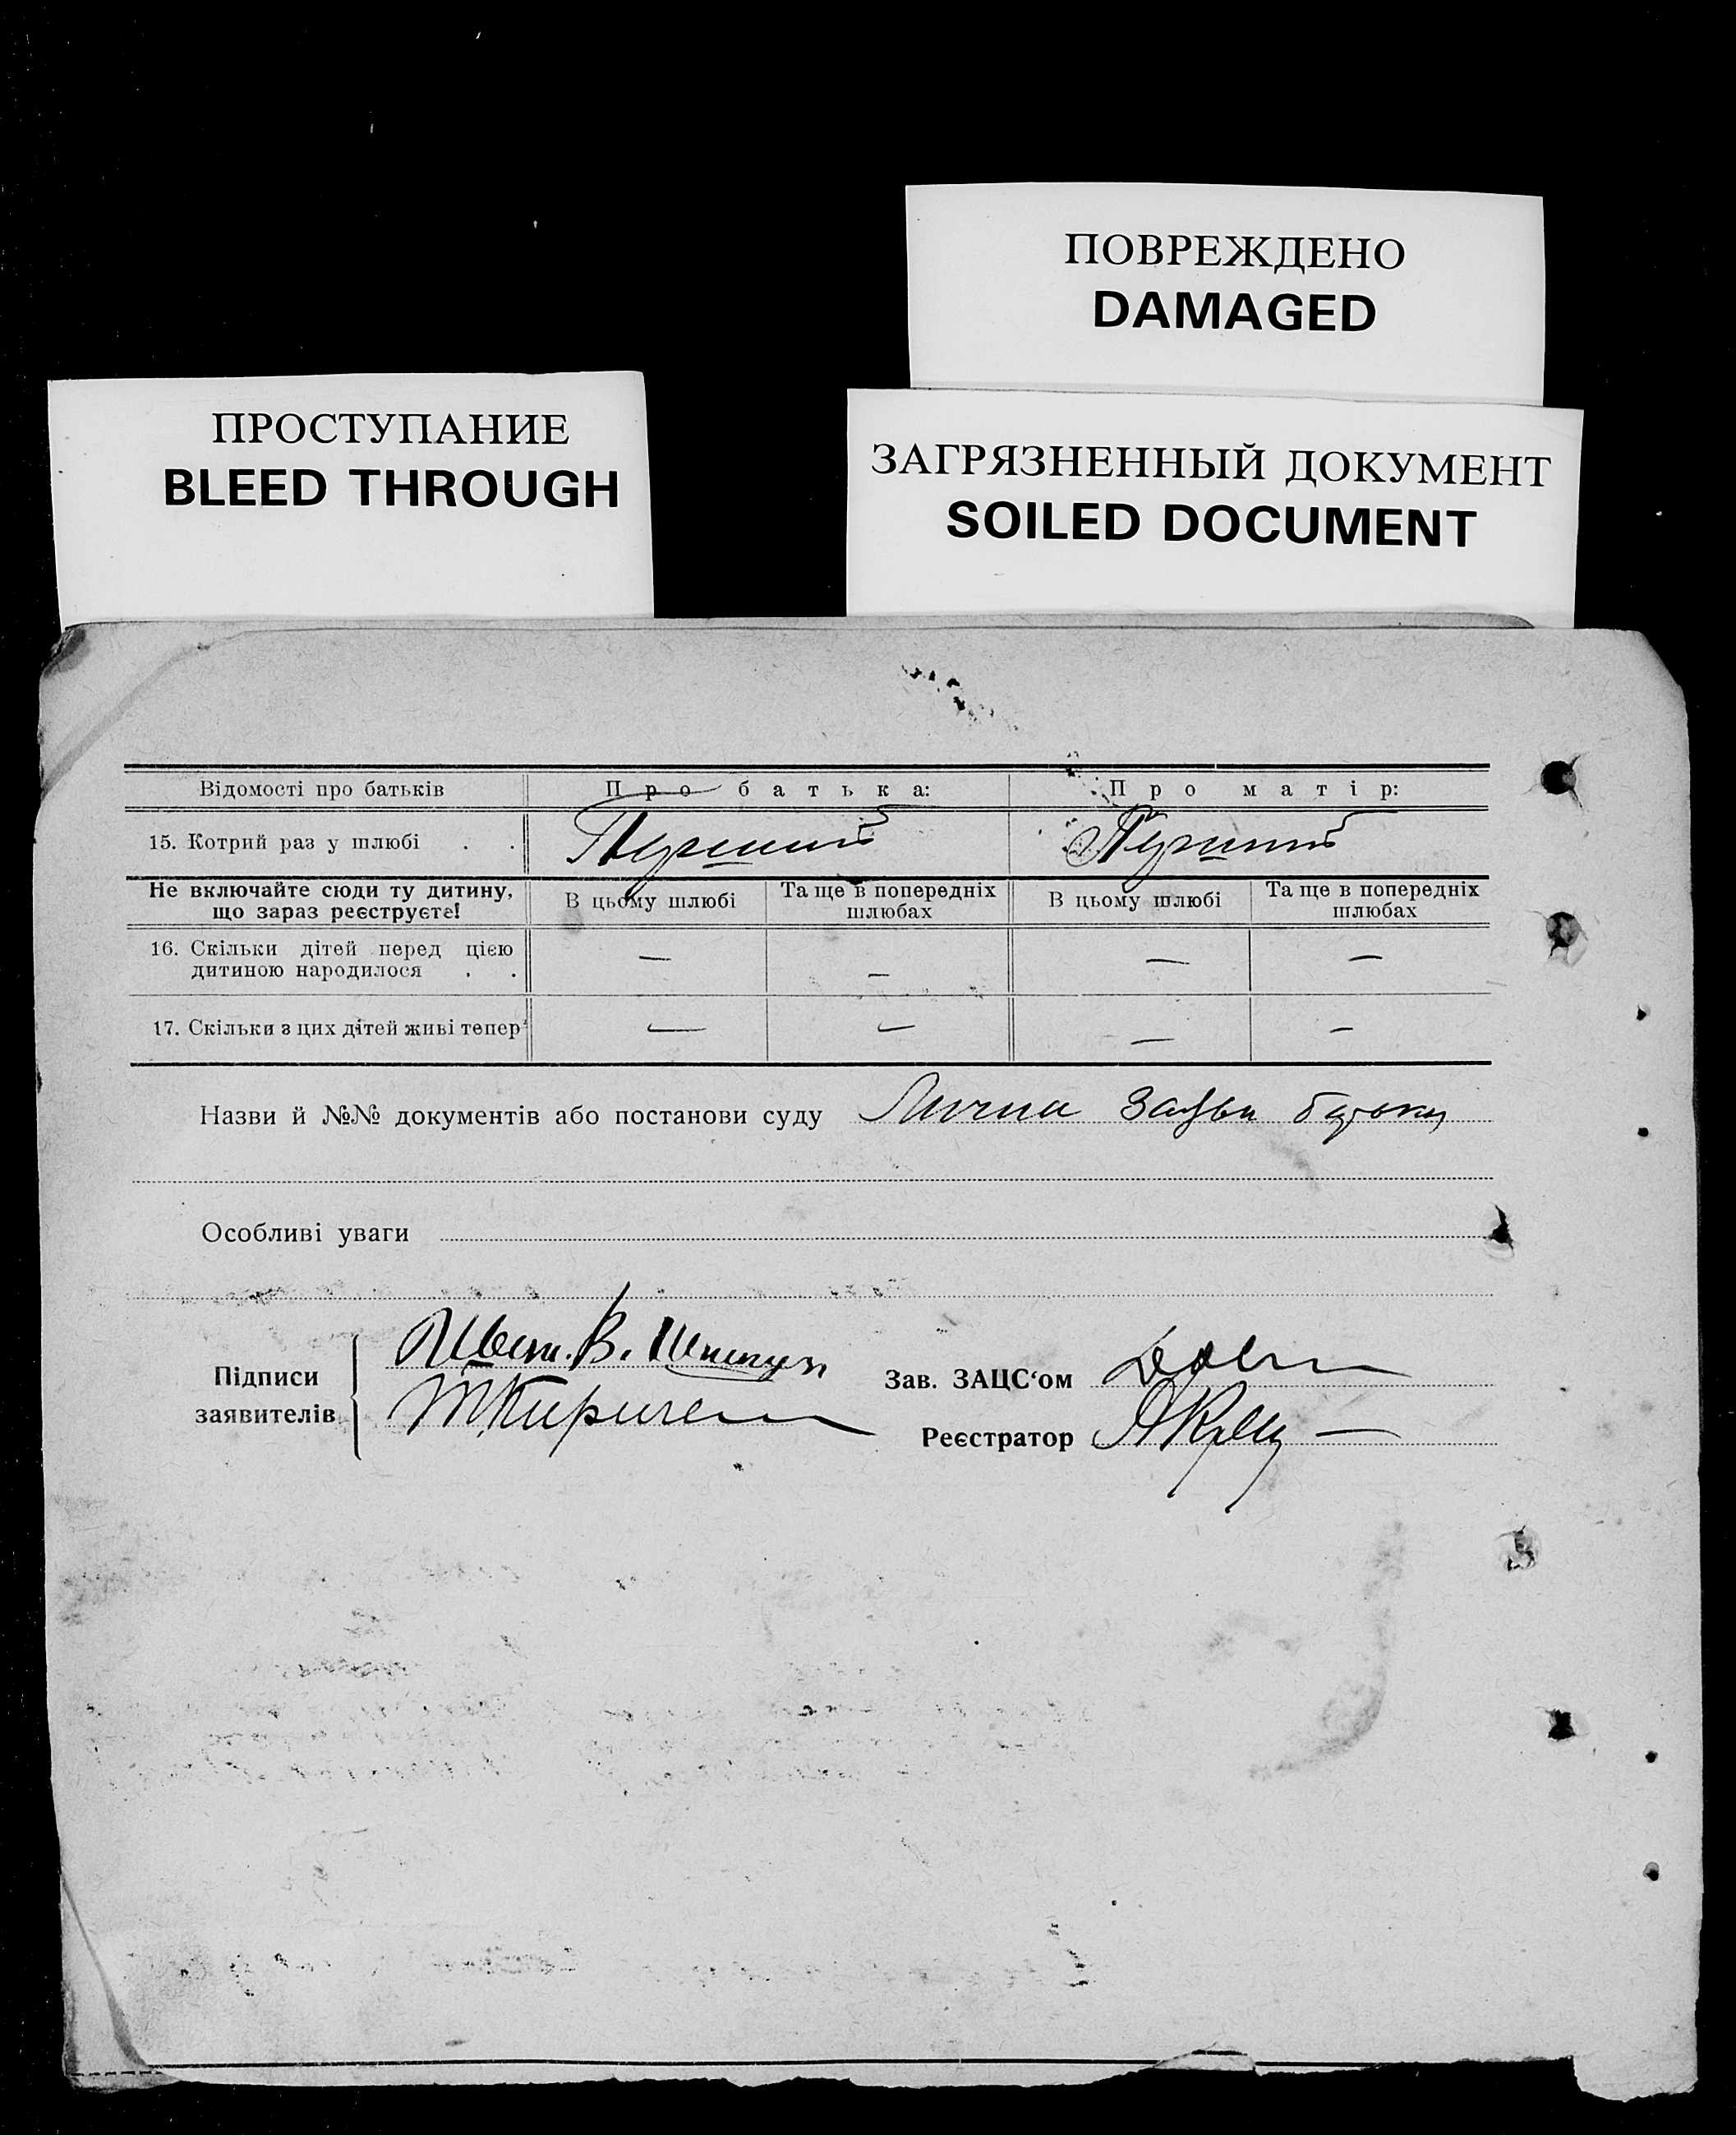 ПОВРЕЖДЕНО
DAMAGED
ПРОСТУПАНИЕ
BLEED THROUGH
ЗАГРЯЗНЕННЫЙ ДОКУМЕНТ
SOILED DOCUMENT
Відомості про батьків Про батька: Про матір:
15. Котрий раз у шлюбі . . Перший Перший
Не включайте сюди ту дитину, що зараз реєструєте! В цьому шлюбі Та ще в попередніх шлюбах В цьому шлюбі Та ще в попередніх шлюбах
16. Скільки дітей перед цією — — — —
дитиною народилося . .
17. Скільки з цих дітей живі тепер — — — —
Назви й №№ документів або постанови суду Лична заява батька
Особливі уваги
Підписи
заявителів
Зав. ЗАЦС‘ом
Реєстратор